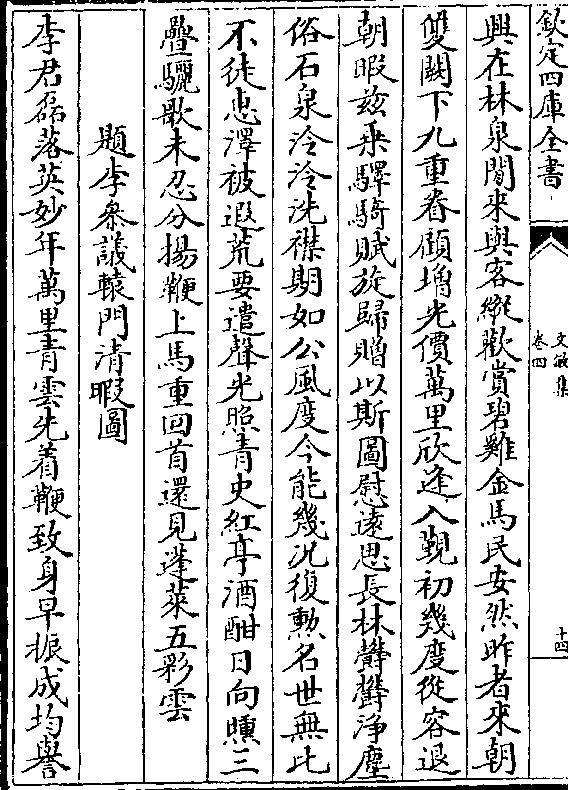 欽定四庫全書
文敏集
卷四
十四
興在林泉閒來與客縱歡賞碧雞金馬民安然昨者來朝
雙闕下九重眷顧增光價萬里欣逢入覲初幾度從容退
朝暇兹乘驛騎賦旋歸贈以斯圖慰遠思長林欝欝浄塵
俗石泉泠泠洗襟期如公風度今能幾況復勲名世無比
不徒恵澤被遐荒要遣聲光照青史紅亭酒酣日向曛三
疊驪歌未忍分揚鞭上馬重回首還見蓬萊五彩雲
題李叅議轅門清暇圖
李君磊落英妙年萬里青雲先着鞭致身早振成均譽